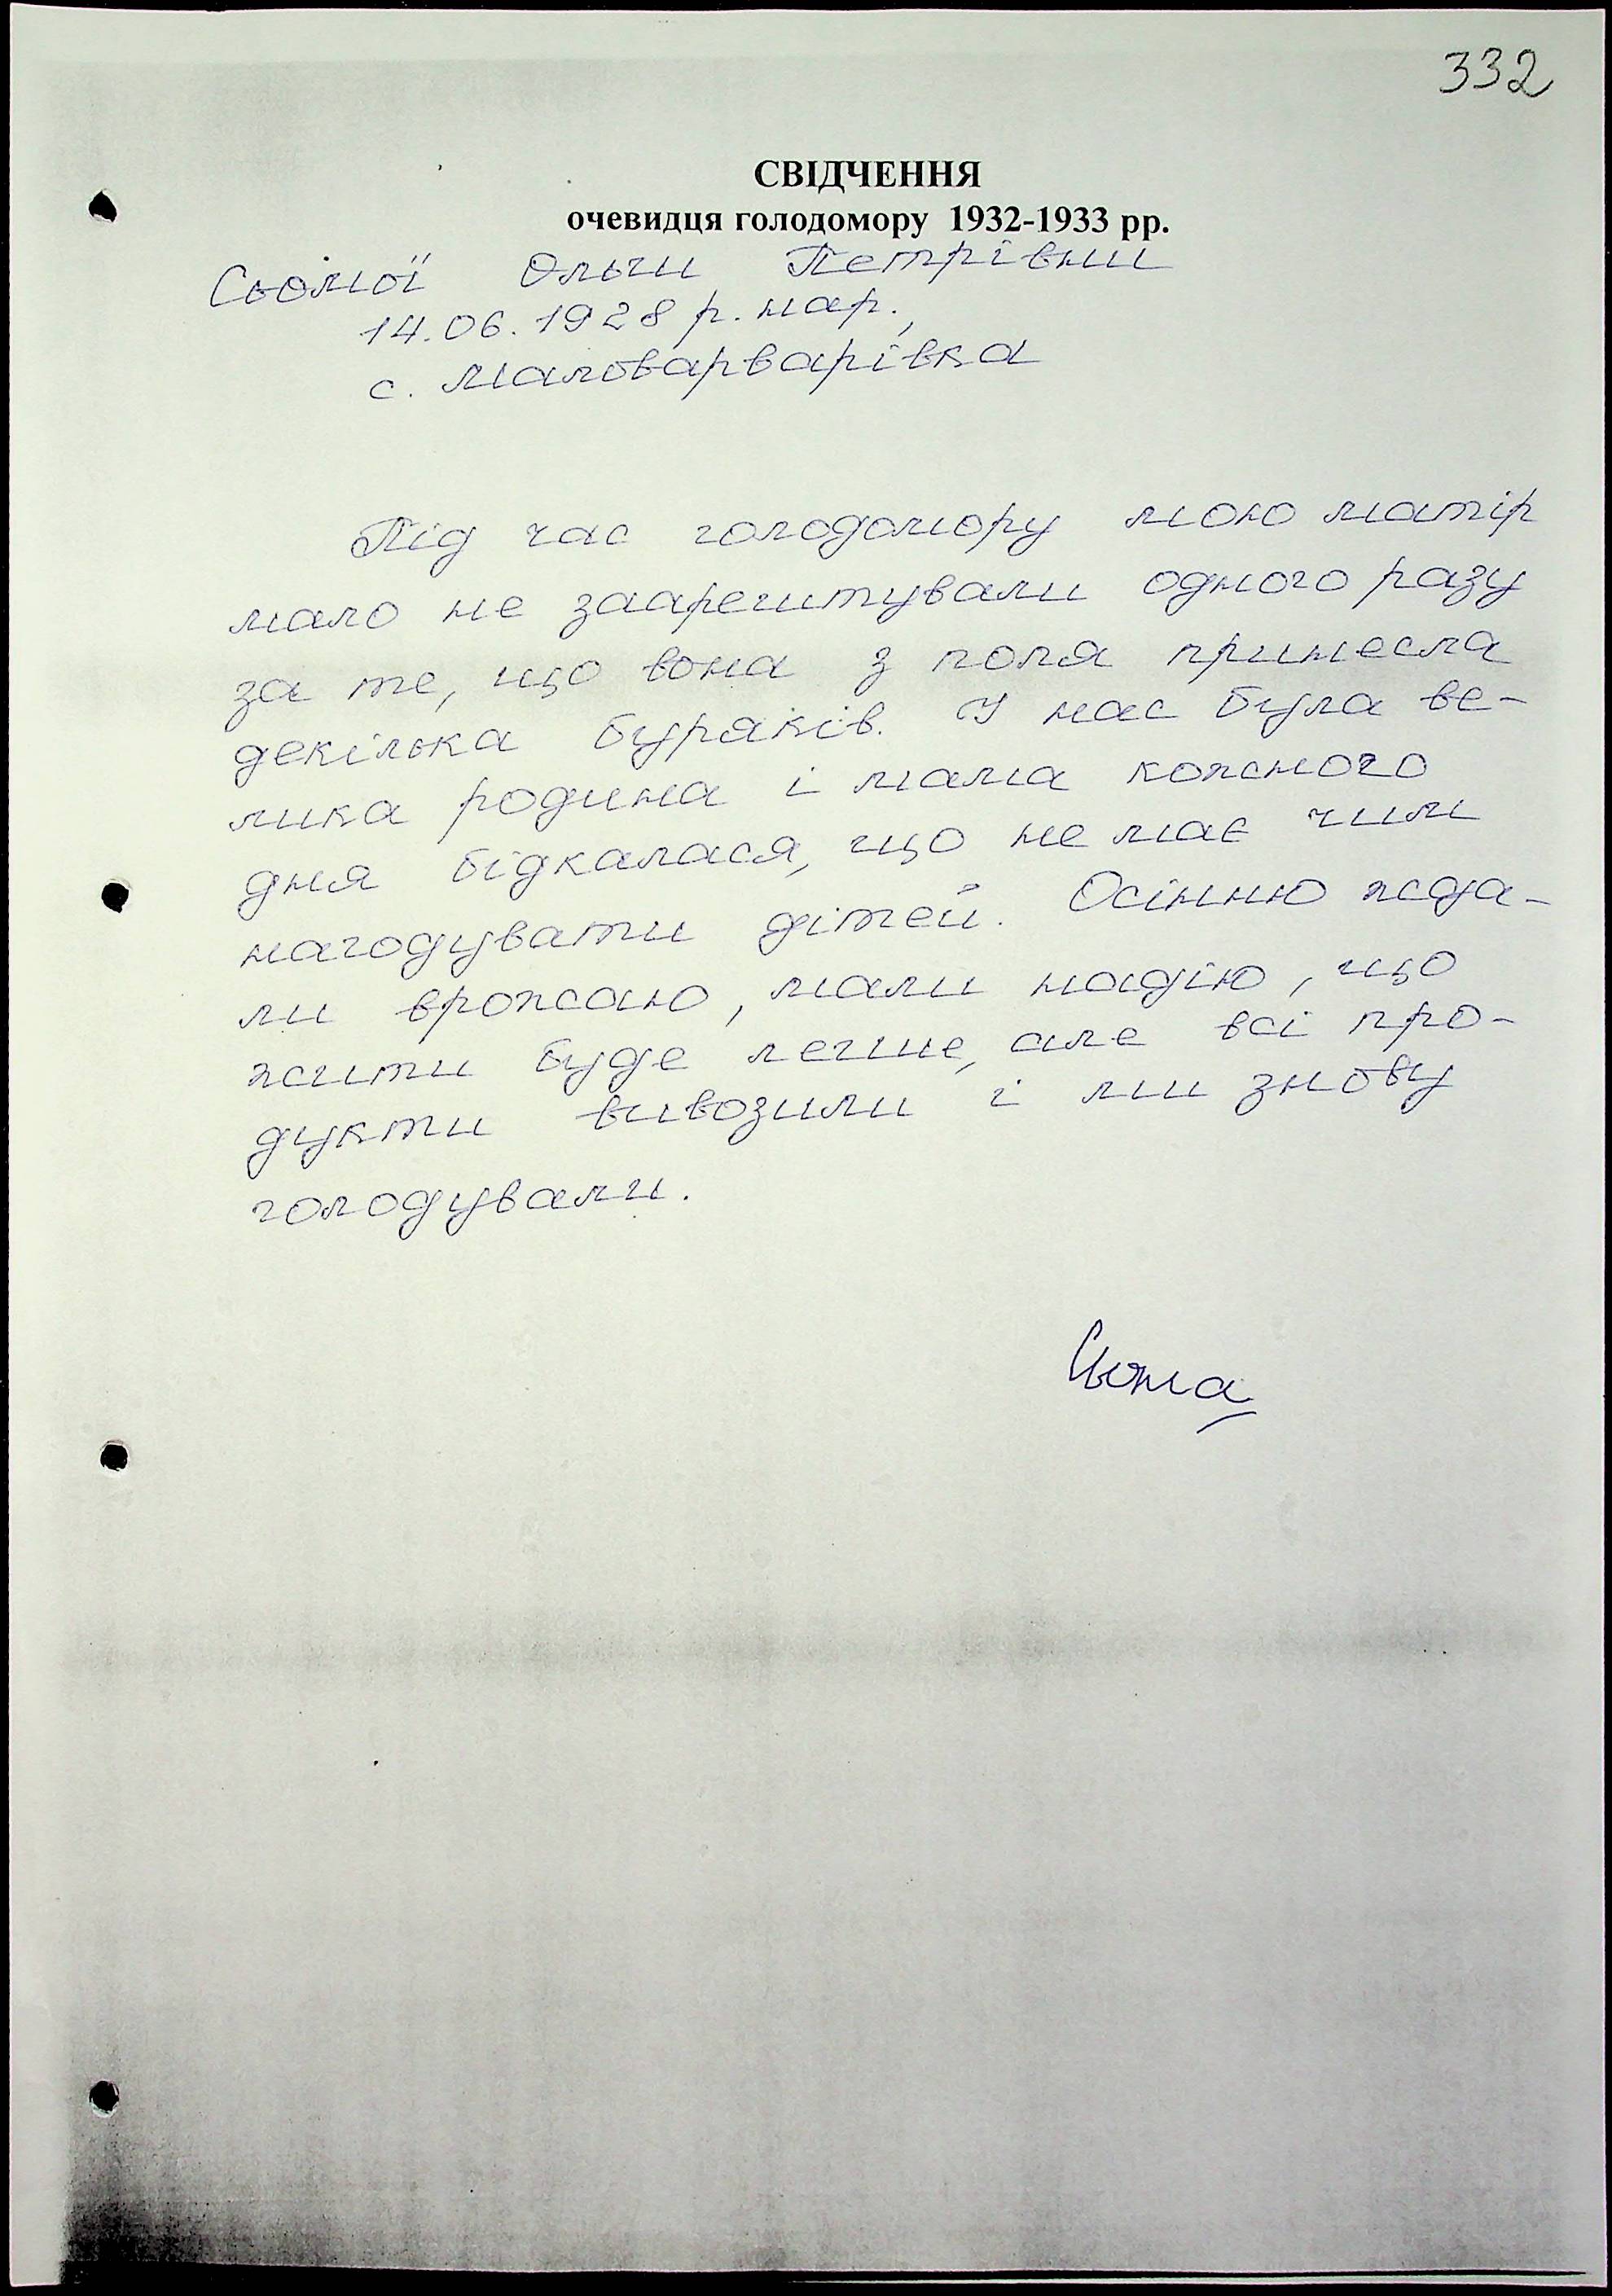 332
СВІДЧЕННЯ
очевидця голодомору 1932-1933 рр.
Сьомої Ольги Петрівни
14.06.1928 р. нар.,
с. Маловарварівка
Під час голодомору мою матір
мало не заарештували одного разу
за те, що вона з поля принесла
декілька буряків. У нас була ве-
лика родина і мама кожного
дня бідкалася, що не має чим
нагодувати дітей. Осінню жда-
ли врожаю, мали надію, що
жити буде легше, але всі про-
дукти вивозили і ми знову
голодували.
Сьома